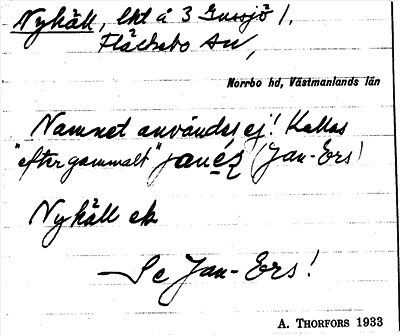 Nyhäll, lht å 3 Gussjö 1,
Fläckebo sn,
Norrbo hd, Västmanlands län
Namnet användes ej! Kallas
"efter gammalt" janés (Jan-Ers)
Nyhäll ek
— Se Jan-Ers!
A. THORFORS 1933